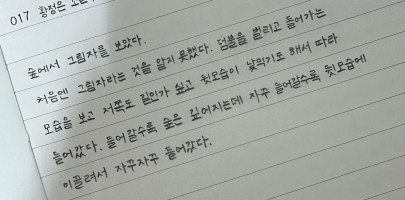 017 황정은
숲에서 그림자를 보았다.
처음엔 그림자라는 것을 알지 못했다. 덤불을 벌리고 들어가는
모습을 보고 저쪽도 길인가 싶고 뒷모습이 낯익기도 해서 따라
들어갔다. 들어갈수록 숲은 깊어지는데 자꾸 들어갈수록 뒷모습에
이끌려서 자꾸자꾸 들어갔다.